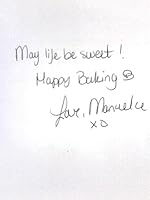 May life be sweet!
Happy Baking
Love, Manuela
xo